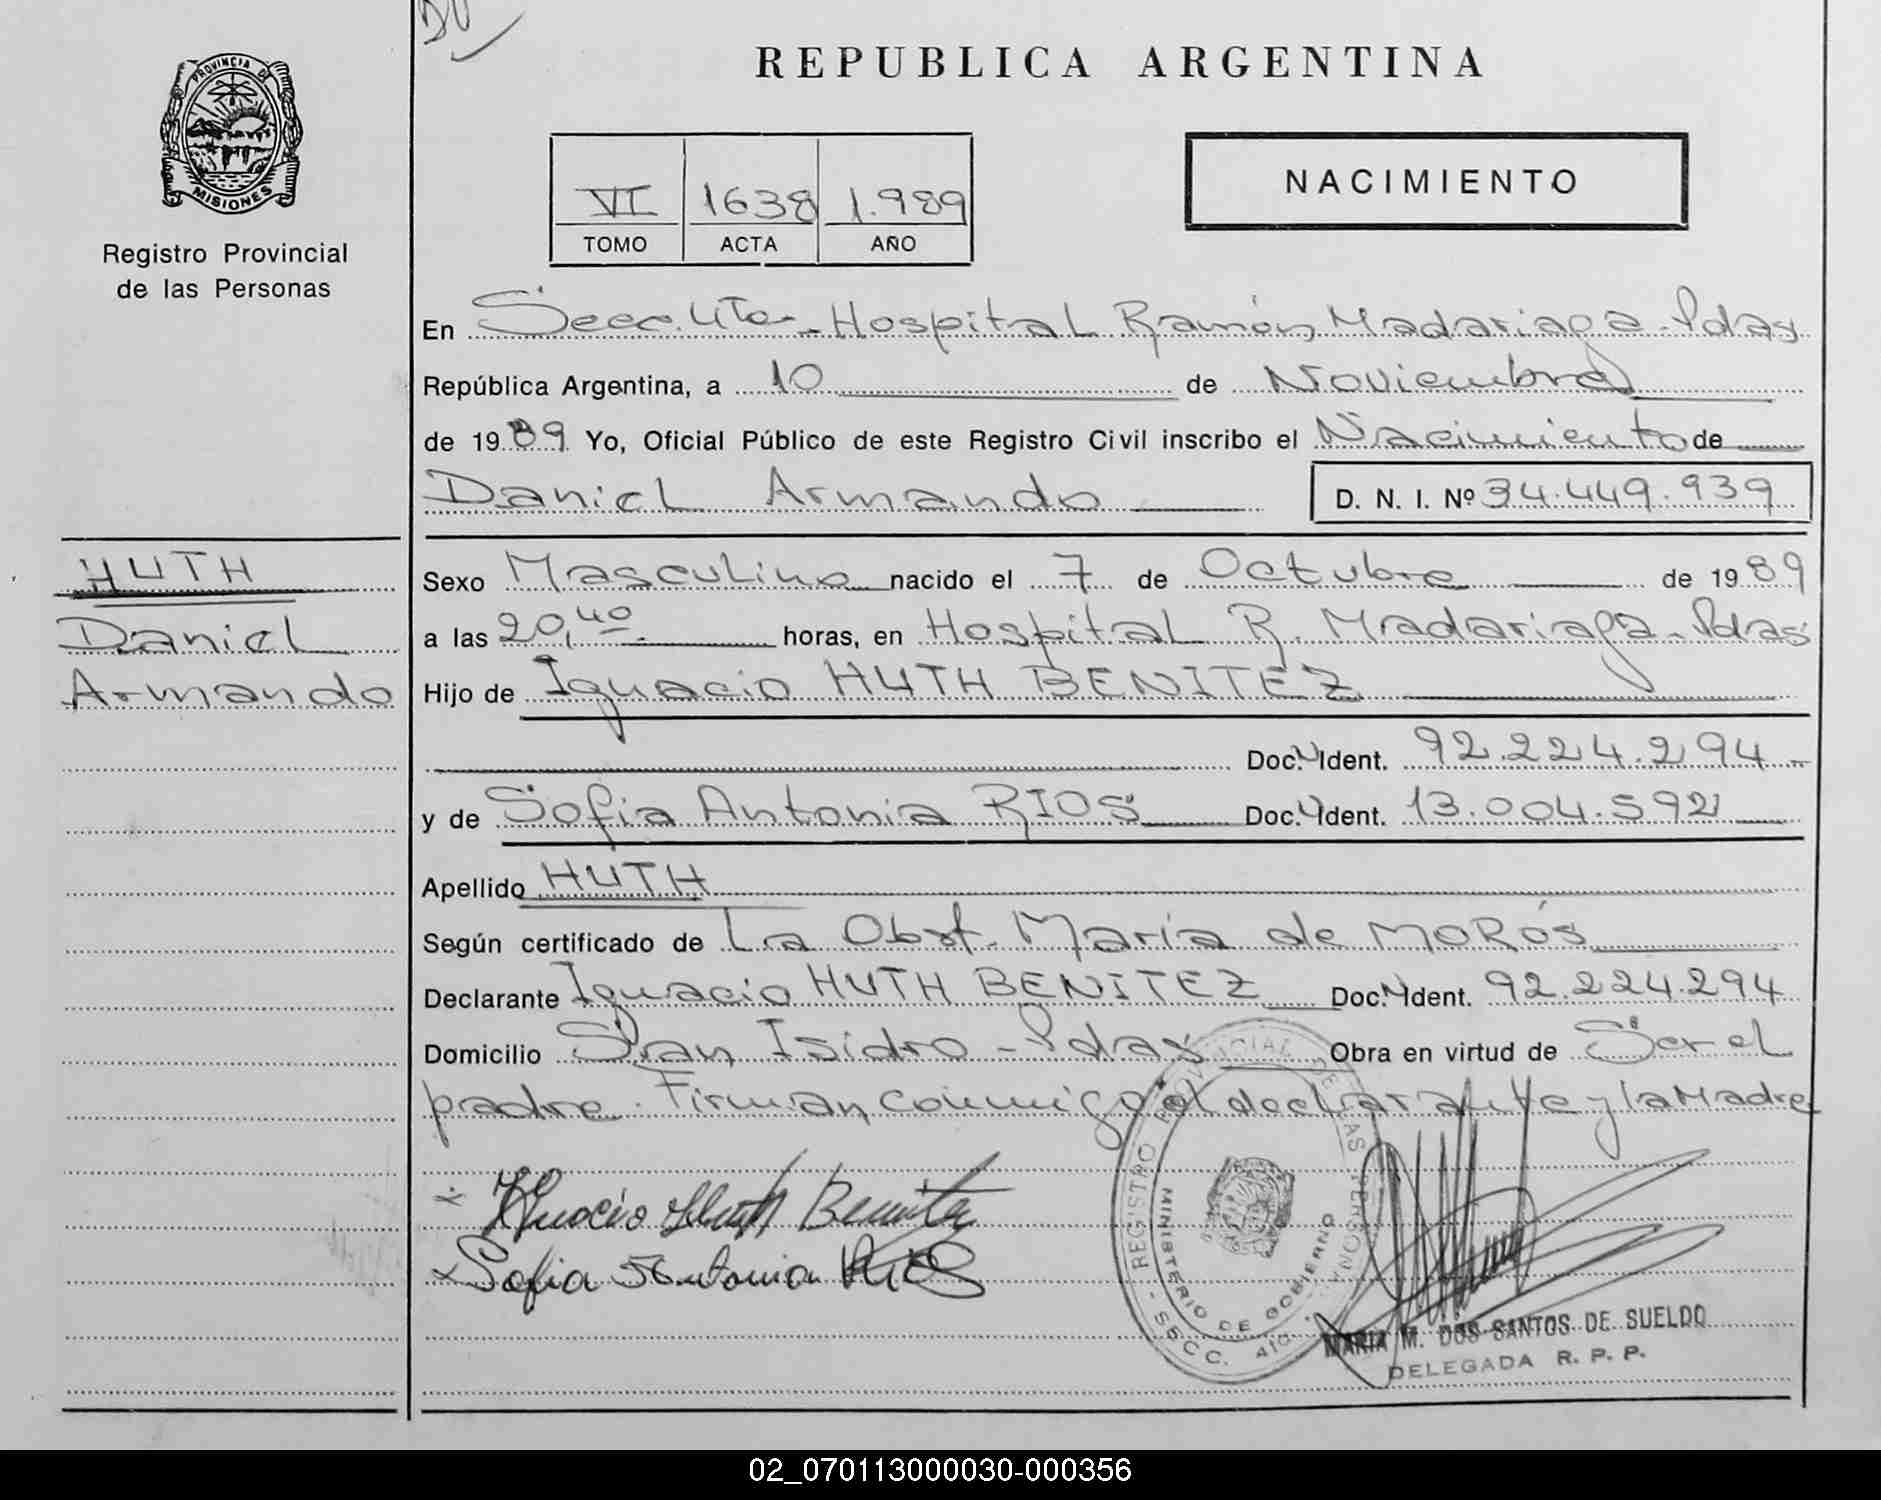 REPUBLICA ARGENTINA
PROVINCIA DE
MISIONES
Registro Provincial
de las Personas
NACIMIENTO
VI 1638 1.989
TOMO ACTA AÑO
En Secc. 4ta. Hospital Ramón Madariaga - Pdas
República Argentina, a 10 de Noviembre
de 1989 Yo, Oficial Público de este Registro Civil inscribo el Nacimiento de
Daniel Armando D. N. I. Nº 34.449.939
HUTH
Daniel
Armando
Sexo Masculino nacido el 7 de Octubre de 1989
a las 20,40 horas, en Hospital R. Madariaga - Pdas
Hijo de Ignacio HUTH BENITEZ
Doc. Ident. 92.224.294
y de Sofia Antonia RIOS Doc. Ident. 13.004.592
Apellido HUTH
Según certificado de La Obst. María de MORós
Declarante Ignacio HUTH BENITEZ Doc. Ident. 92.224.294
Domicilio San Isidro - Pdas Obra en virtud de Ser el
padre. Firman conmigo el declarante y la Madre
Ignacio Huth Benitez
Sofia Antonia Rios
REGISTRO PROVINCIAL DE LAS PERSONAS
MINISTERIO DE GOBIERNO
SECC. 4ta
MARIA M. DOS SANTOS DE SUELDO
DELEGADA R. P. P.
02_070113000030-000356